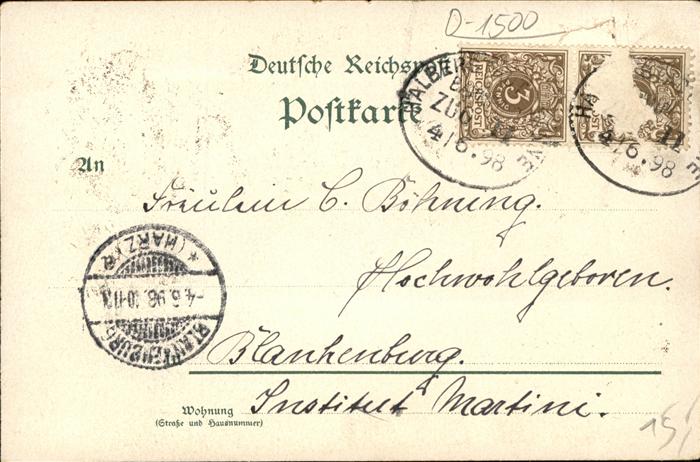 D-1500
Deutsche Reichspost
Postkarte
3
REICHSPOST
ZUG 11
4/6.98
11
4/6.98
An
Fräulein C. Böhning.
Hochwohlgeboren.
* (HARZ) *
-4.6.98. 10-11
BLANKENBURG
Blankenburg.
Wohnung
(Straße und Hausnummer)
Institut Martini.
15,